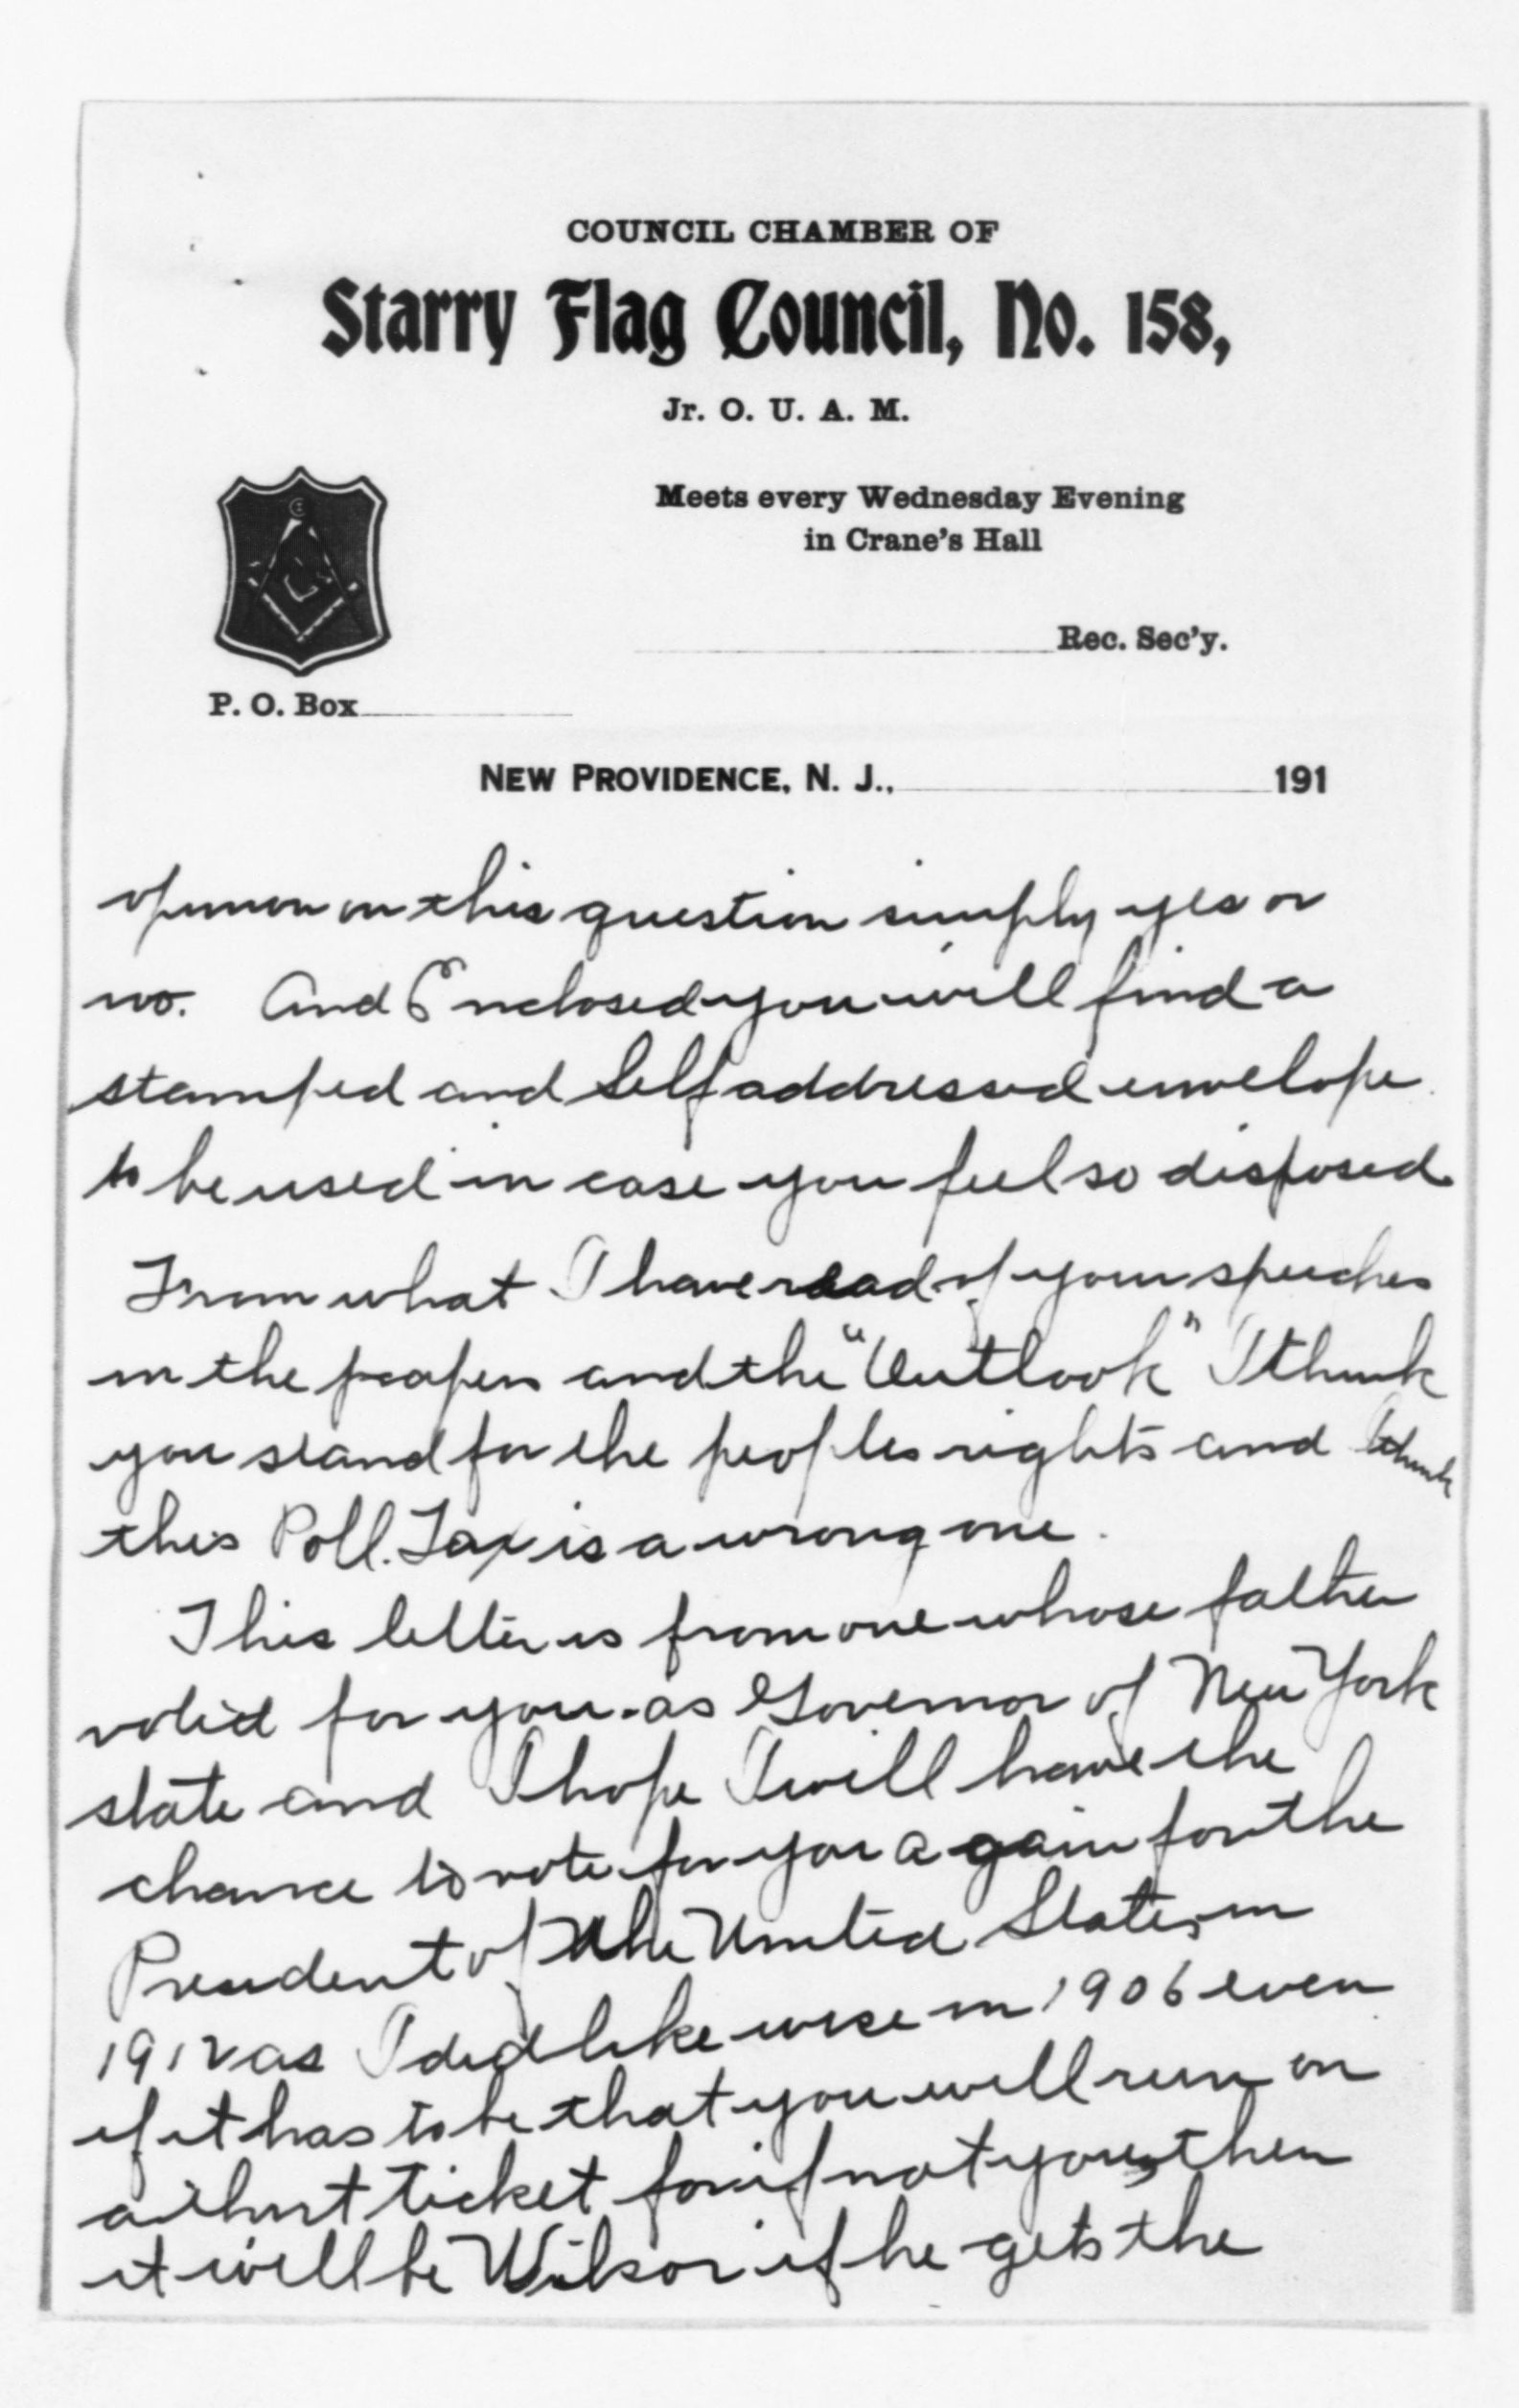 COUNCIL CHAMBER OF
Starry Flag Council, No. 158,
Jr. O. U. A. M.
Meets every Wednesday Evening
in Crane's Hall
Rec. Sec'y.
P. O. Box
NEW PROVIDENCE, N. J., 191
opinion on this question simply yes or
no. And Enclosed you will find a
stamped and Self addressed envelope
to be used in case you feel so disposed.
From what I have read of your speeches
in the papers and the "Outlook" I think
you stand for the peoples rights and I think
this Poll. Tax is a wrong one.
This letter is from one whose father
voted for you as Governor of New York
state and I hope I will have the
chance to vote for you again for the
President of the United States in
1912 as I did likewise in 1906 even
if it has to be that you will run on
a third ticket for if not you then
it will be Wilson if he gets the